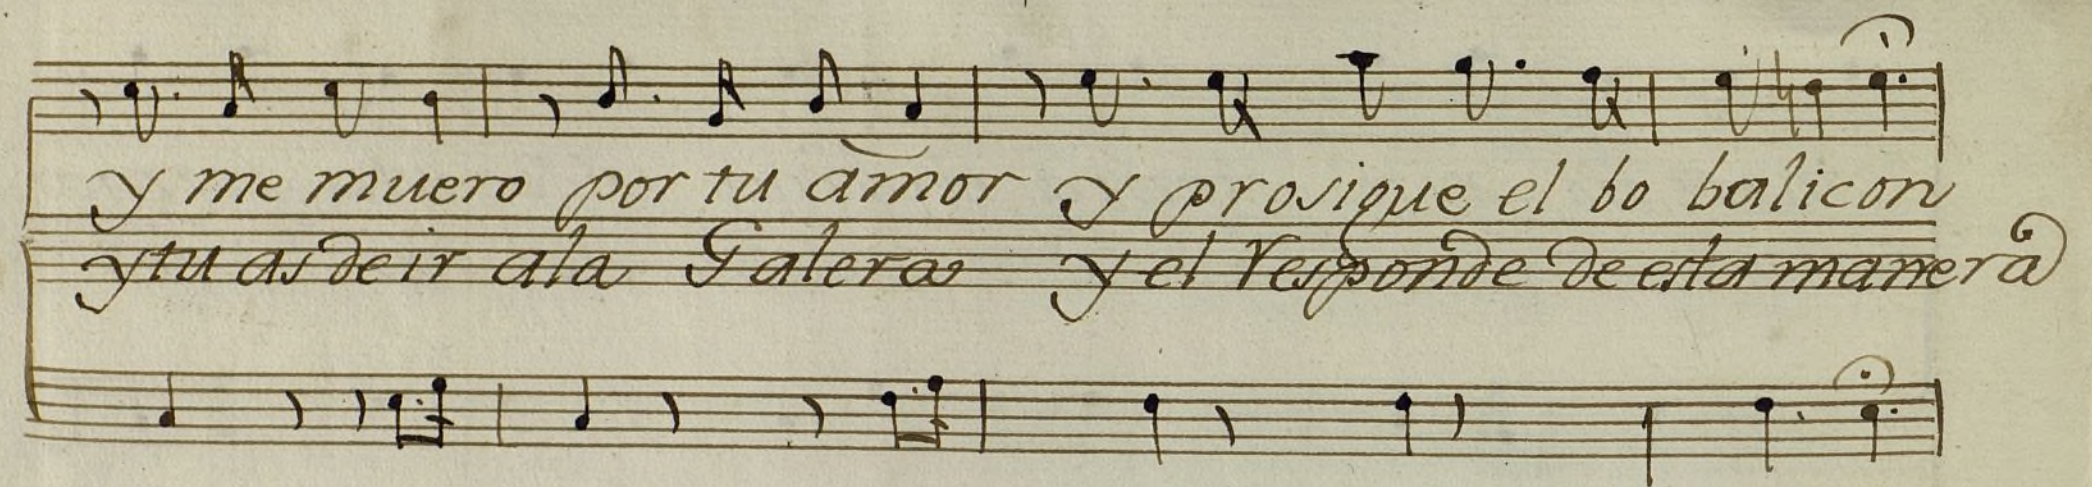 y me muero por tu amor y prosigue el bo balicon
y tu as de ir a la Galera y el Responde de esta manera